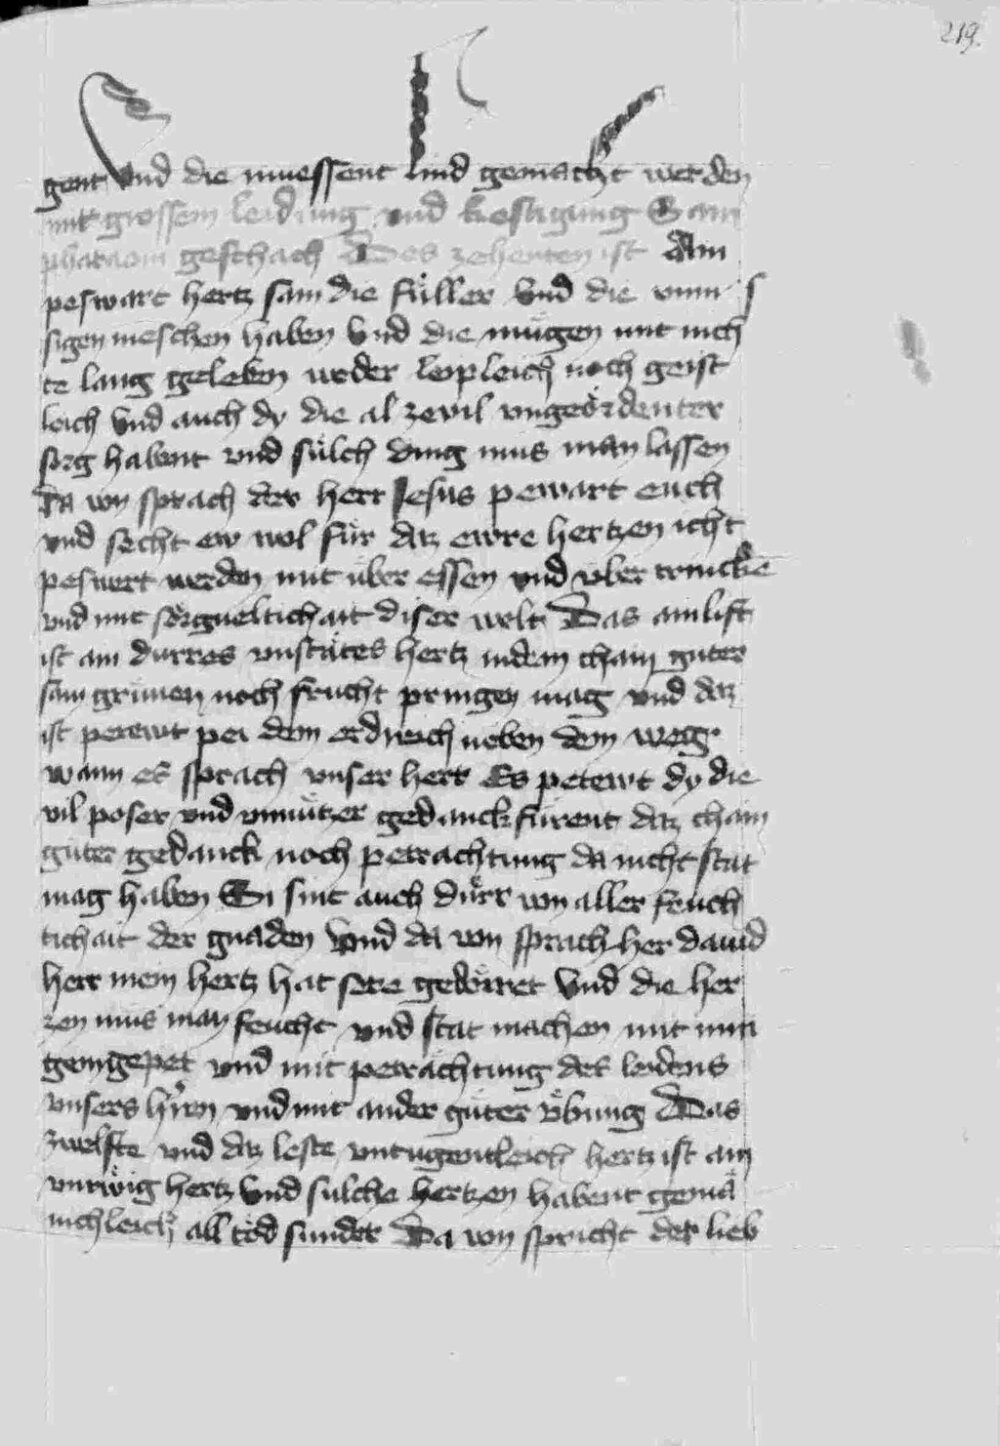 219.
gent Vnd die muessent lind gemacht werden
mit grossem leidung vnd kestigung Sam
pharaoni geschach Das zehenten ist ain
peswart hertz sam die füller vnd die vnm s
sigen meschen haben Vnd die mügen mit nich
te lang geleben weder leipleich noch geist
leich Vnd auch dy die al zevil vngeördenter
sorg habent vnd sülch ding mus man lassen
Da von sprach der herr Jesus pewart euch
vnd secht ew wol für daz ewre hertzen icht
peswert werden mit über essen vnd über trincken
vnd mit sörgueltichait diser welt Das ainlift
ist ain durres vnstätes hertz indem chain guter
sam grünen noch frucht pringen mag vnd daz
ist perewt pei dem erdreich neben dem weg
wann es sprach vnser herr Es petewt dy die
vil poser vnd vnnützer gedanck fürent daz chain
güter gedanck noch petrachtung da nicht stat
mag haben Si sint auch dürr von aller fruch
tichait der gnaden Vnd da von sprach her dauid
herr mein hertz hat sere gedörret Vnd die her
zen müs man feucht vnd stat machen mit inni
gem gepet vnd mit peträchtung des leidens
vnsers hren vnd mit ander güter übung Das
zwelfte vnd daz leste vntugentleich hertz ist ain
vnrwig hertz Vnd sulche hertzen habent gemä
nichleich all töd sunder Da von spricht der lieb